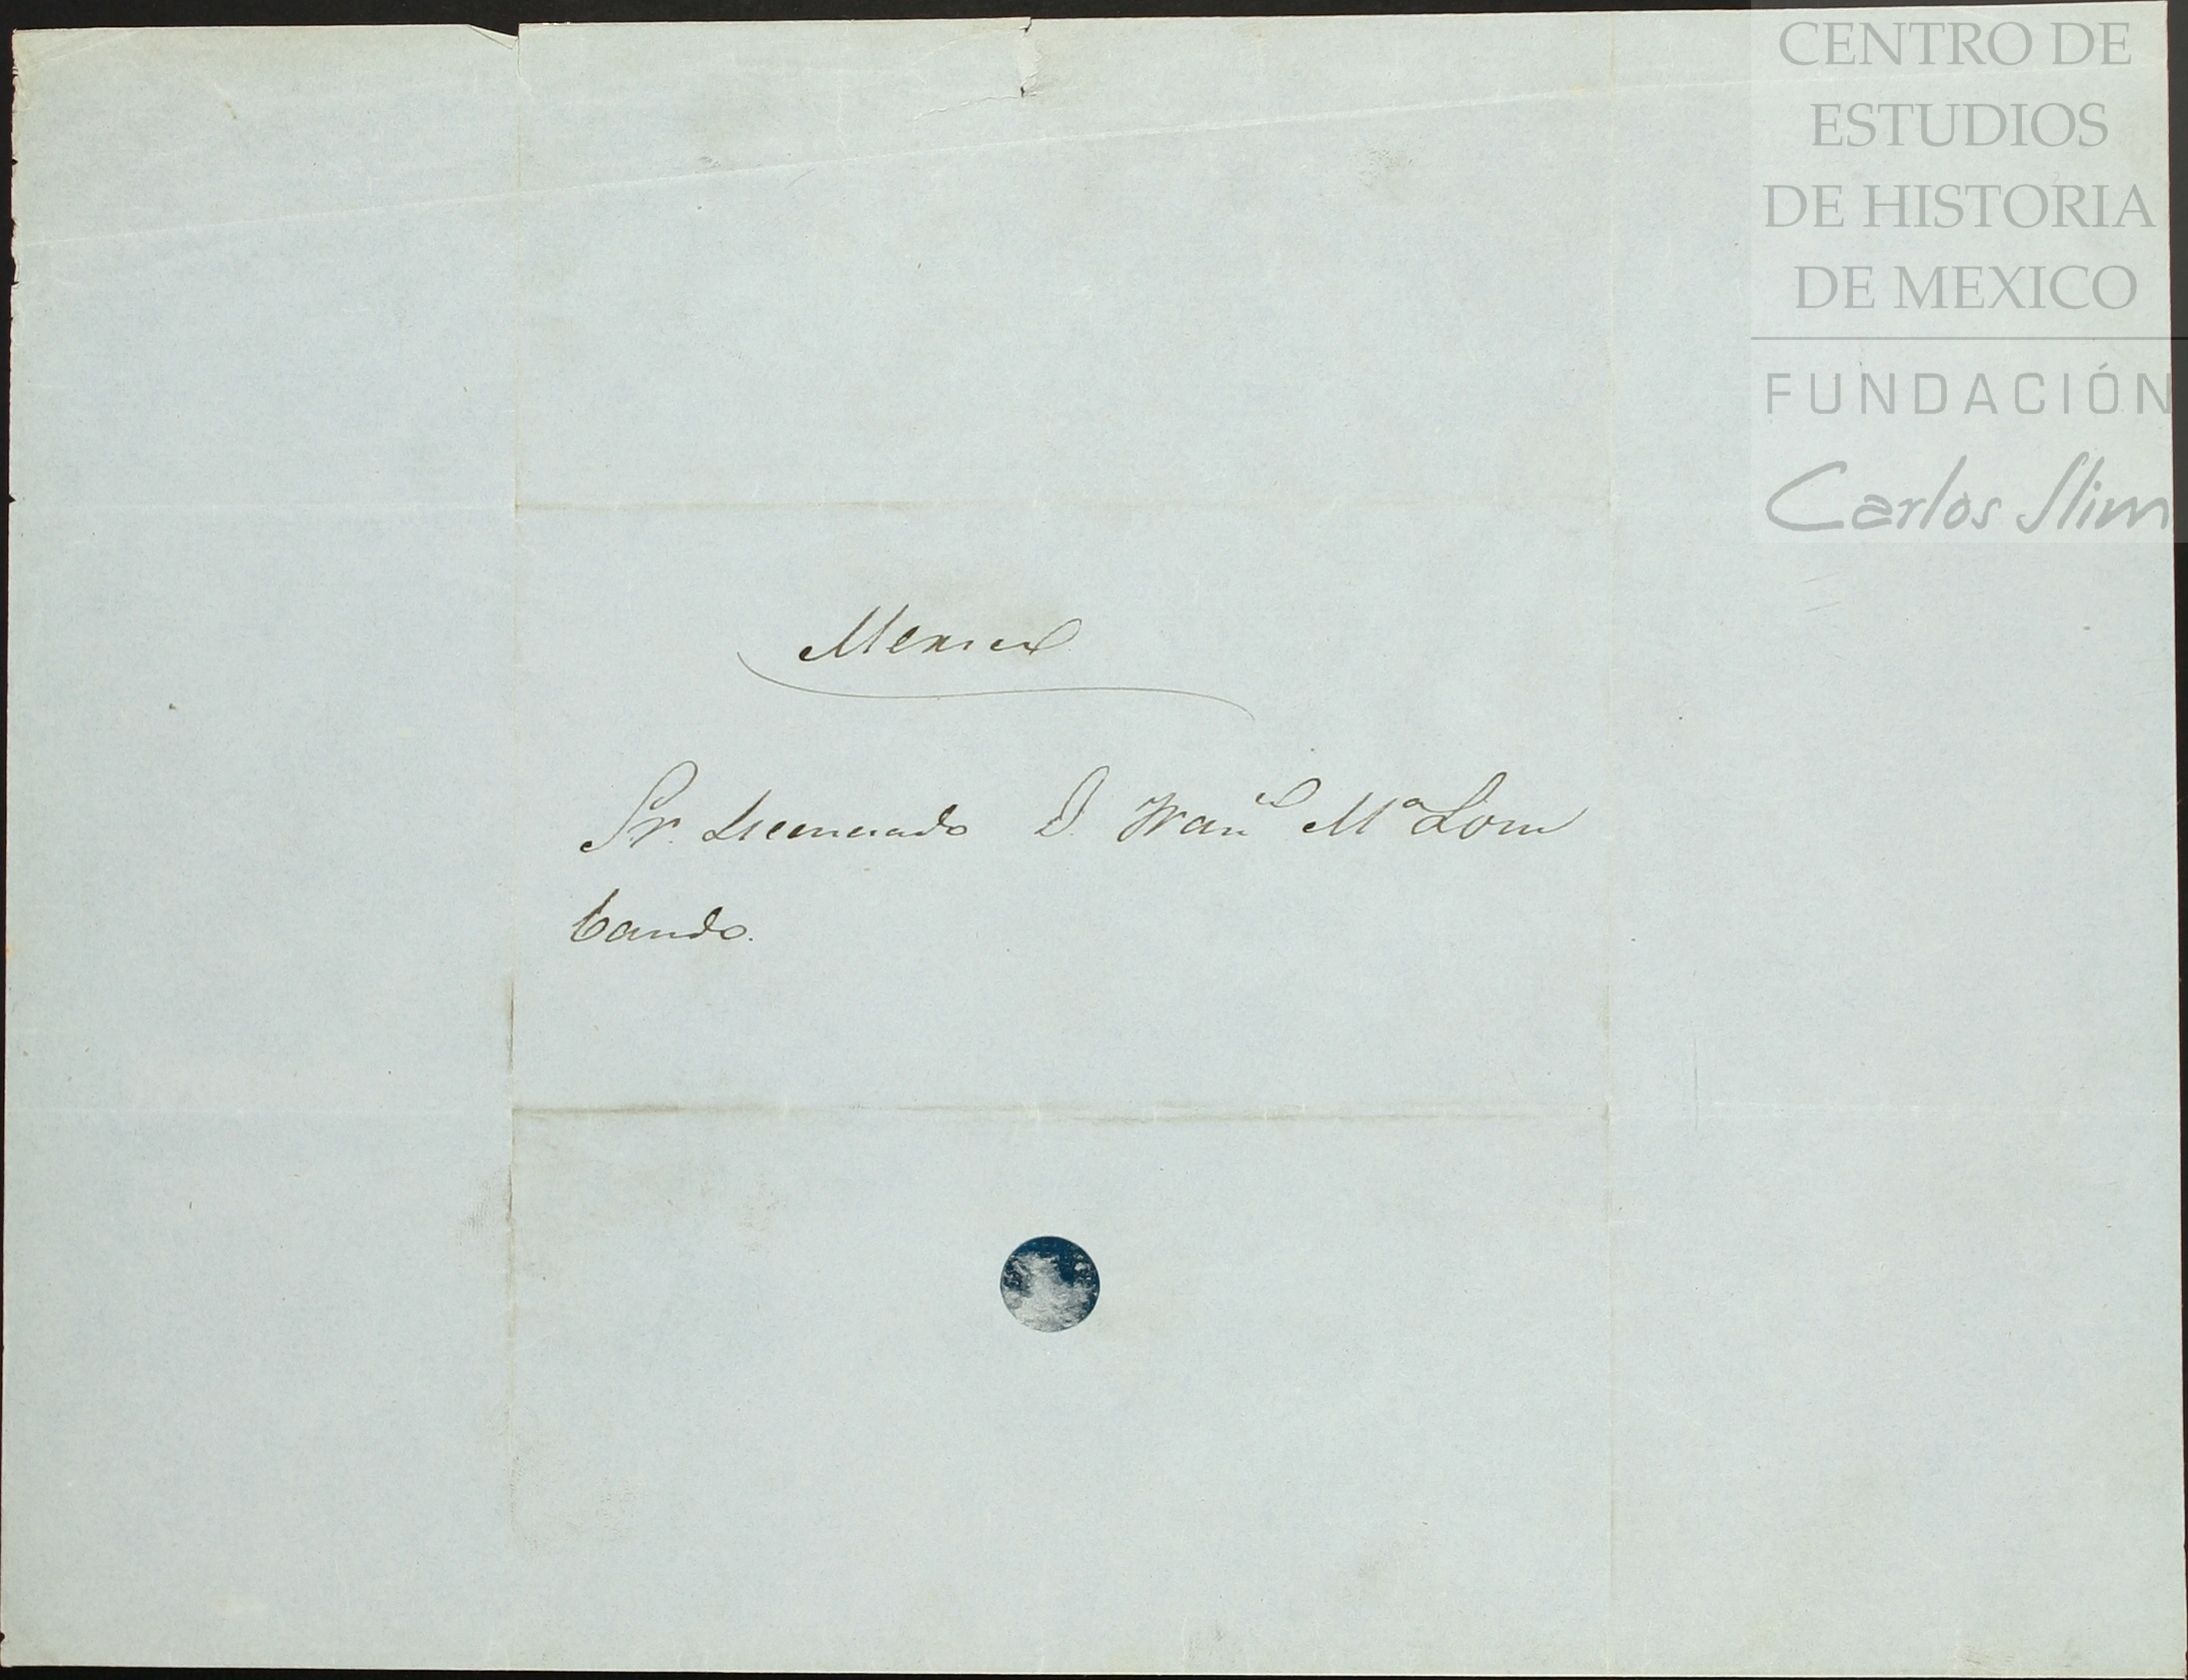 CENTRO DE
ESTUDIOS
DE HISTORIA
DE MEXICO
FUNDACIÓN
Carlos Slim
Mexico
Sr. Licenciado D. Fran.co M.a Lom
bardo.